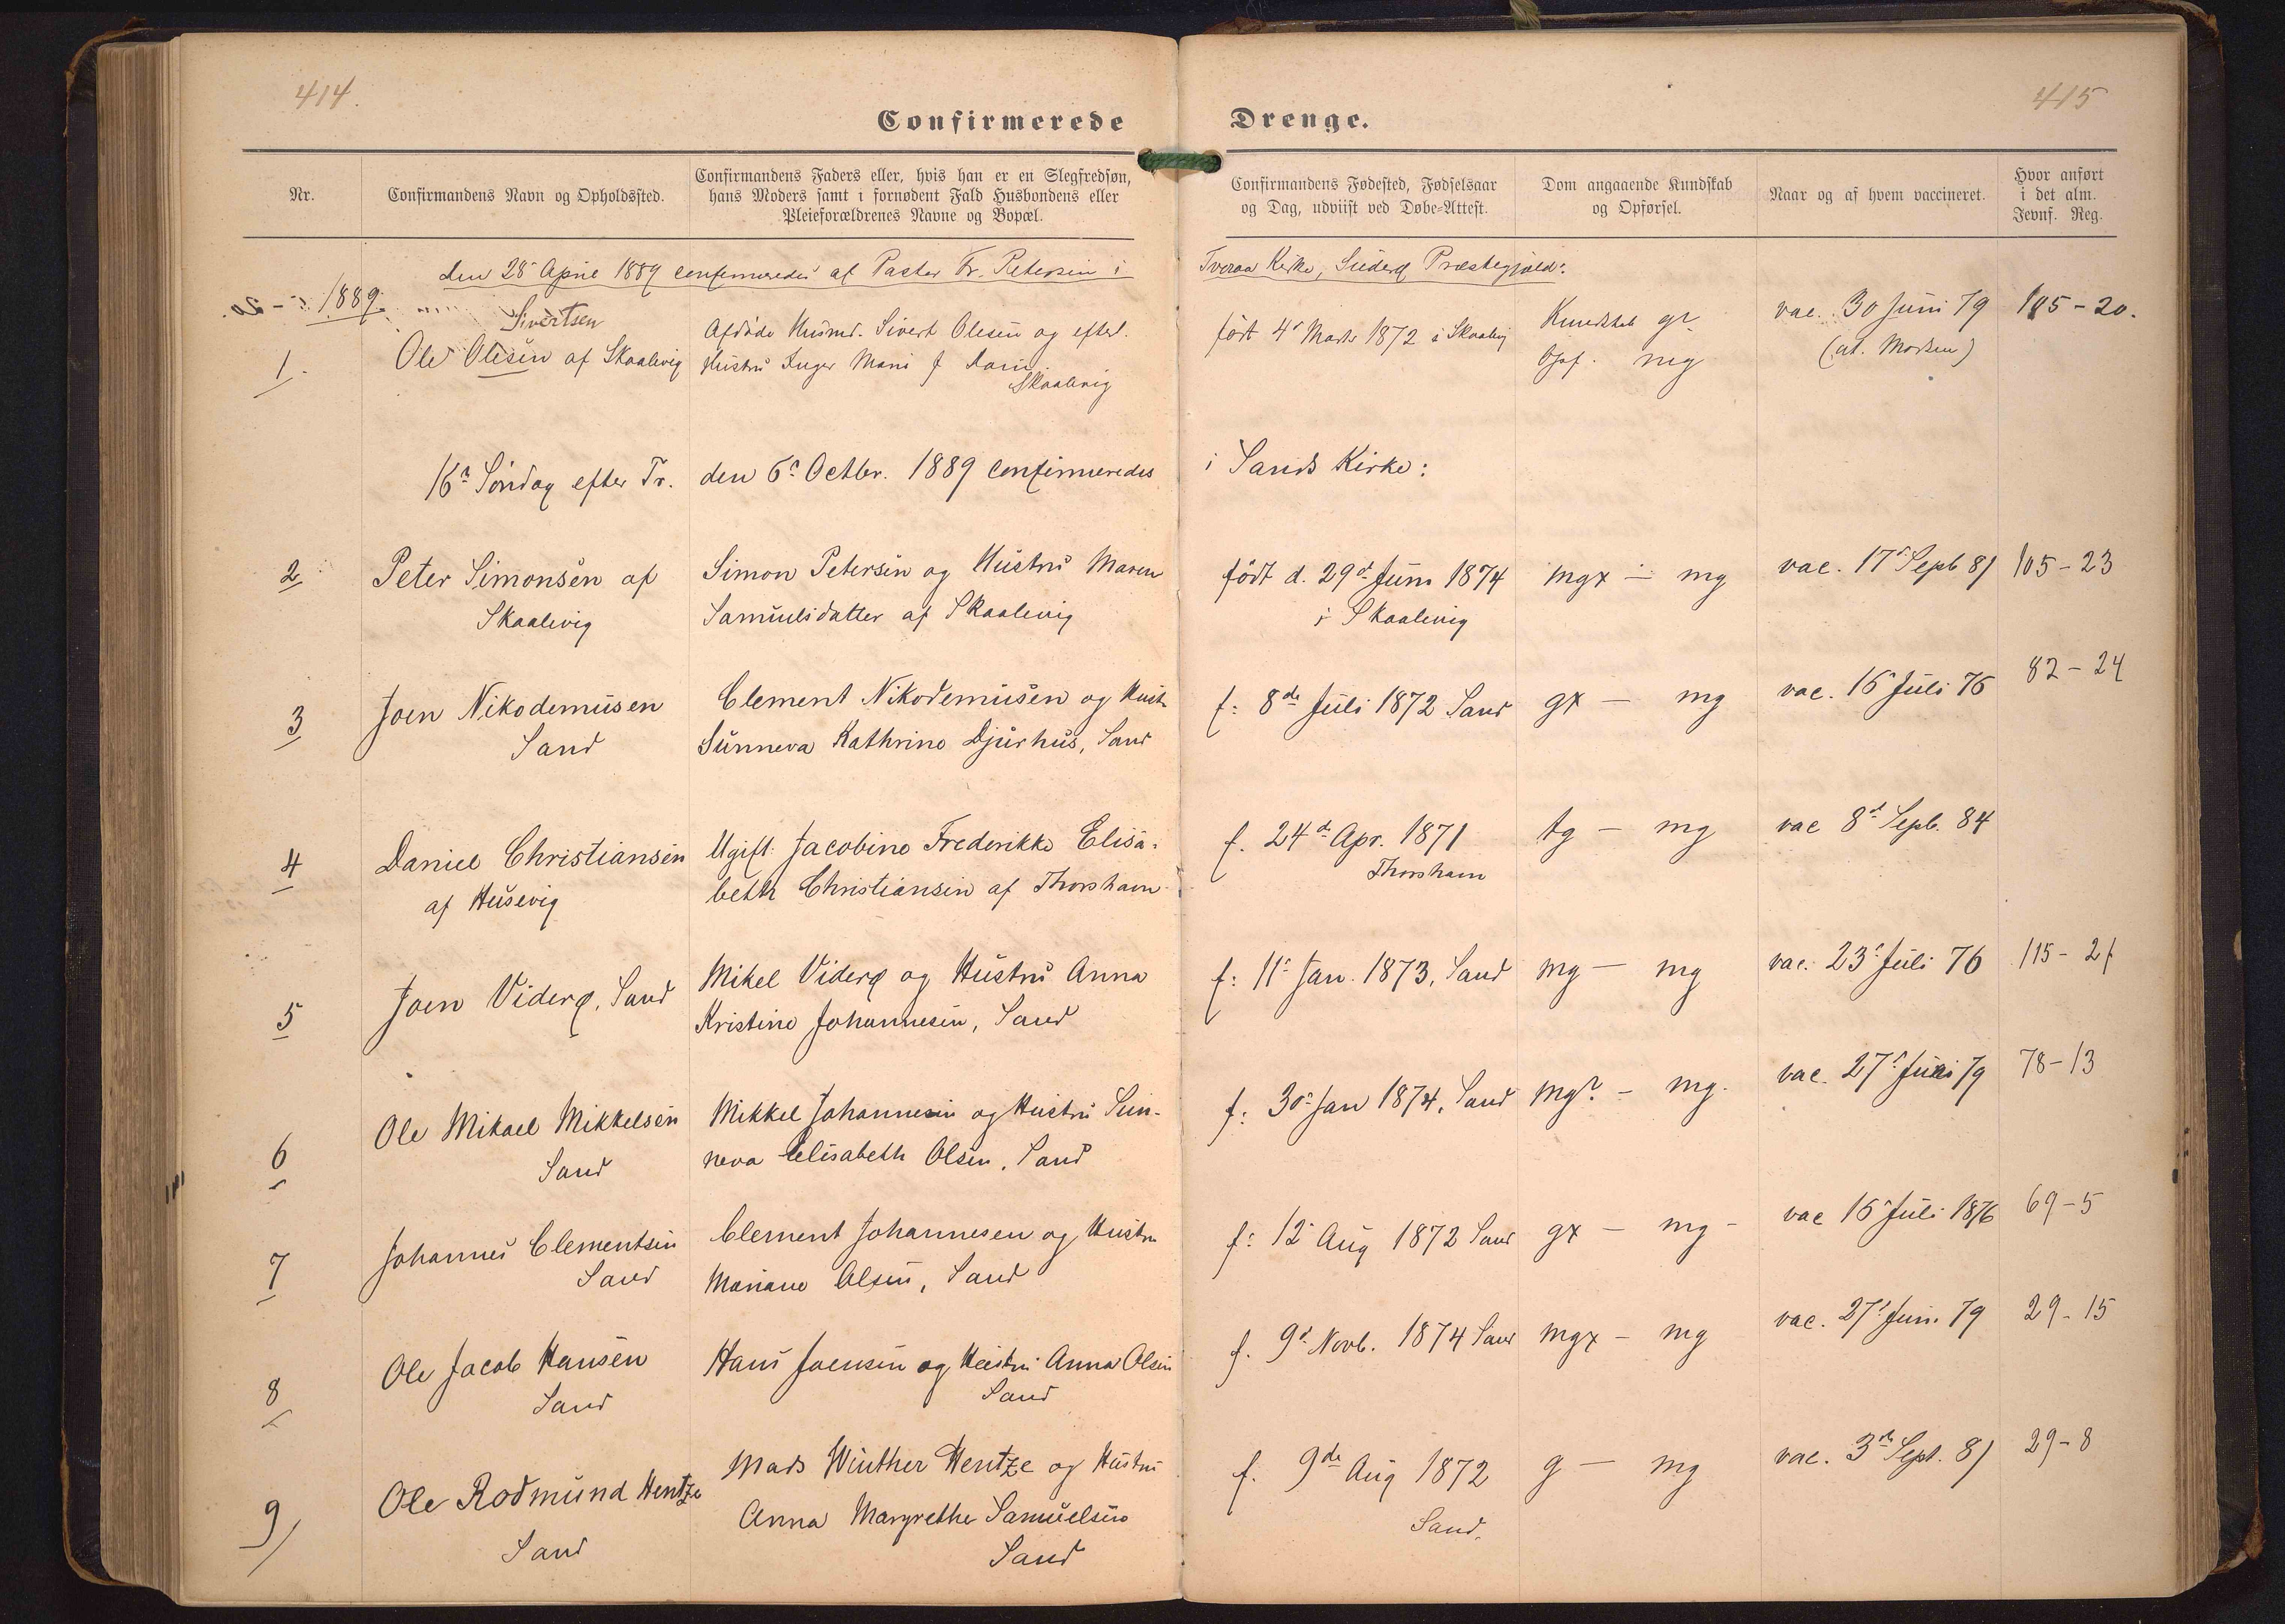 414.
415
Confirmerede Drenge.
Nr.
Confirmandens Navn og Opholdssted.
Confirmandens Faders eller, hvis han er en Slegfredsøn,
hans Moders samt i fornødent Fald Husbondens eller
Pleieforældrenes Navne og Bopæl.
Confirmandens Fødested, Fødselsaar
og Dag, udviist ved Døbe-Attest.
Dom angaaende Kundskab
og Opførsel.
Naar og af hvem vaccineret.
Hvor anført
i det alm.
Jevnf. Reg.
den 28 April 1889 confirmeredes af Pastor Fr. Petersen i Tveraa Kirke, Suderø Præstegjæld:
1889
Sivertsen
1. Ole Olesen af Skaalevig
Afdøde Husmd. Sivert Olesen og efterl.
Hustru Inger Marie f
Skaalevig
født 4 Marts 1872 i Skaalevig
Kundskab gr
Opf. mg
vac. 30 Juni 79
105-20.
16 Søndag efter Tr. den 6 Octbr. 1889 confirmeredes i Sands Kirke:
2 Peter Simonsen af
Skaalevig
Simon Petersen og Hustru Maren
Samuelsdatter af Skaalevig
født d. 29 Juni 1874
i Skaalevig
mgx - mg
vac. 17 Sept 81
105-23
3 Joen Nikodemusen
Sand
Clement Nikodemusen og Hustr
Sunneva Kathrine Djurhus, Sand
f: 8de Juli 1872 Sand
gx - mg
vac. 16 Juli 76
82-24
4 Daniel Christiansen
af Husevig
Ugift Jacobine Frederikke Elisa-
beth Christiansen af Thorshavn
f. 24d Apr. 1871
Thorshavn
tg - mg
vac 8d Sept. 84
5 Joen Viderø, Sand
Mikel Viderø og Hustru Anna
Kristine Johannesen, Sand
f: 11 Jan. 1873, Sand
mg - mg
vac. 23 Juli 76
115-21
6 Ole Mikael Mikkelsen
Sand
Mikkel Johannesen og Hustru Sun-
neva Elisabeth Olsen, Sand
f: 30 Jan 1874, Sand
mg? - mg.
vac. 27 Juni 79
78-13
7 Johannes Clementsen
Sand
Clement Johannesen og Hustru
Mariane Olsen, Sand
f: 12 Aug 1872 Sand
gx - mg -
vac 16 Juli 1876
69-5
8 Ole Jacob Hansen
Sand
Hans Joensen og Hustru Anna Olsen
Sand
f. 9d Novb. 1874 Sand
mgx - mg
vac. 27 Juni 79
29-15
9 Ole Rodmund Hentze
Sand
Mads Winther Hentze og Hustru
Anna Margrethe Samuelsen
Sand
f. 9de Aug 1872
Sand.
g - mg
vac. 3d Sept. 81
29-8